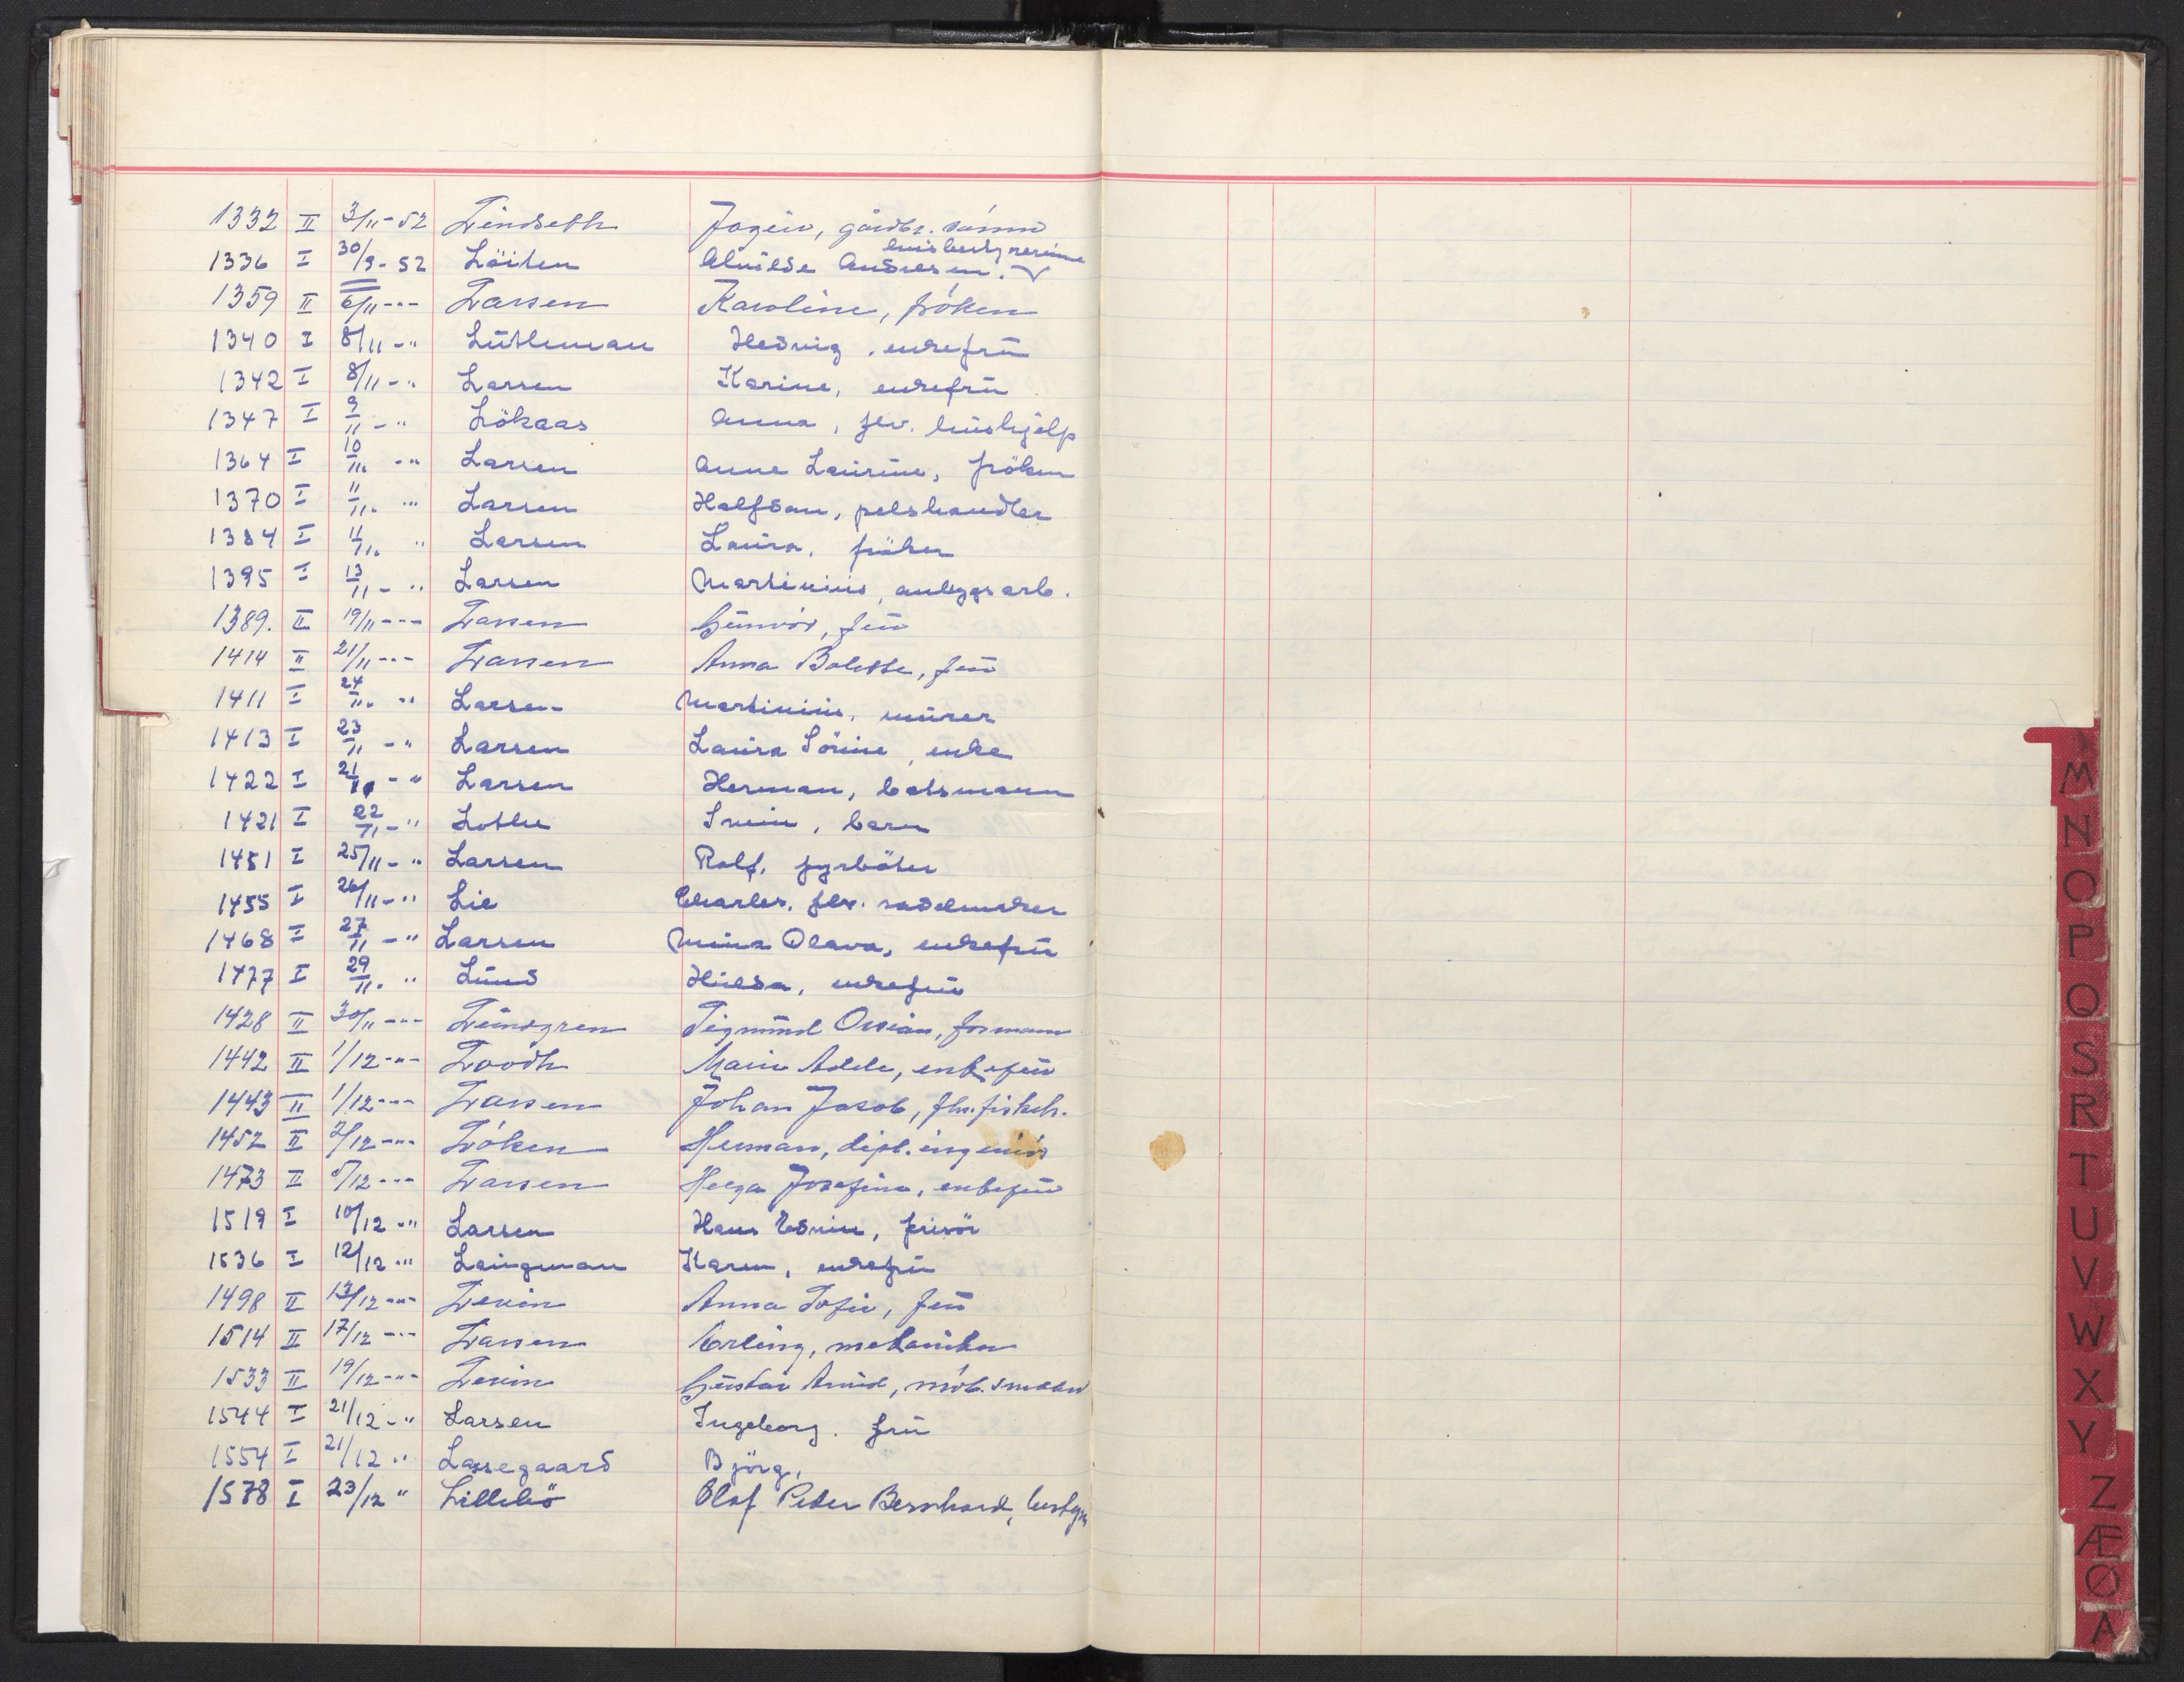 1332 II 3/11-52 Lindseth Jogeir, gårdbr. sønn
1336 I 30/9-52 Löiten Alvilde Andresen. husbestyrerinne
1359 II 6/11-"- Larsen Karoline, frøken
1340 I 8/11-" Lütleman Hedvig, enkefrü
1342 I 8/11-" Larsen Karine, enkefrü
1347 I 9/11-" Lökaas Anna, fhv. hüshjelp
1364 I 10/11. -" Larsen Anne Laurine, fröken
1370 I 11/11. " Larsen Halfdan, pelshandler
1384 I 11/11. " Larsen Laura, fröken
1395 I 13/11-" Larsen Martinius, anleggsarb.
1389. II 19/11-"- Larsen Gunvor, frü
1414 II 21/11-"- Larsen Anna Bolette, frü
1411 I 24/11. " Larsen Martinius, murer
1413 I 23/11-" Larsen Laura Sörine, enke
1422 I 21/11-" Larsen Herman, batsmann
1421 I 22/11-" Lothe Svein, barn
1451 I 25/11-" Larsen Rolf, fyrböter
1455 I 26/11-" Lie Charles, fhv. sadelmaker
1468 I 27/11-" Larsen Mina Olava, enkefrü
1477 I 29/11. " Lund Hilda, enkefrü
1428 II 30/11-"- Lundgren Sigmund Ossian, formann
1442 II 1/12-"- Loodh Marie Adele, enkefrü
1443 II 1/12-"- Larsen Johan Jacob, fhv. fiskeh.
1452 II 2/12-"- Løken Herman, dipl. ingeniør
1473 II 5/12-"- Larsen Helga Josefine, enkefrü
1519 I 10/12-" Larsen Hans Edvin, frisör
1536 I 12/12-" Laugman Karen, enkefrü
1498 II 13/12-"- Levin Anna Sofie, frü
1514 II 17/12-"- Larsen Erling, mekaniker
1533 II 19/12-"- Levin Gustav Arvid, møb. snekker
1544 I 21/12-" Larsen Ingeborg. frü
1554 I 21/12 " Lassegaard Björg,
1578 I 23/12 " Lillebö Olaf Peter Bernhard, bestyr
M
N
O
P
Q
S
R
T
U
V
W
X
Y
Z
Æ
Ø
A